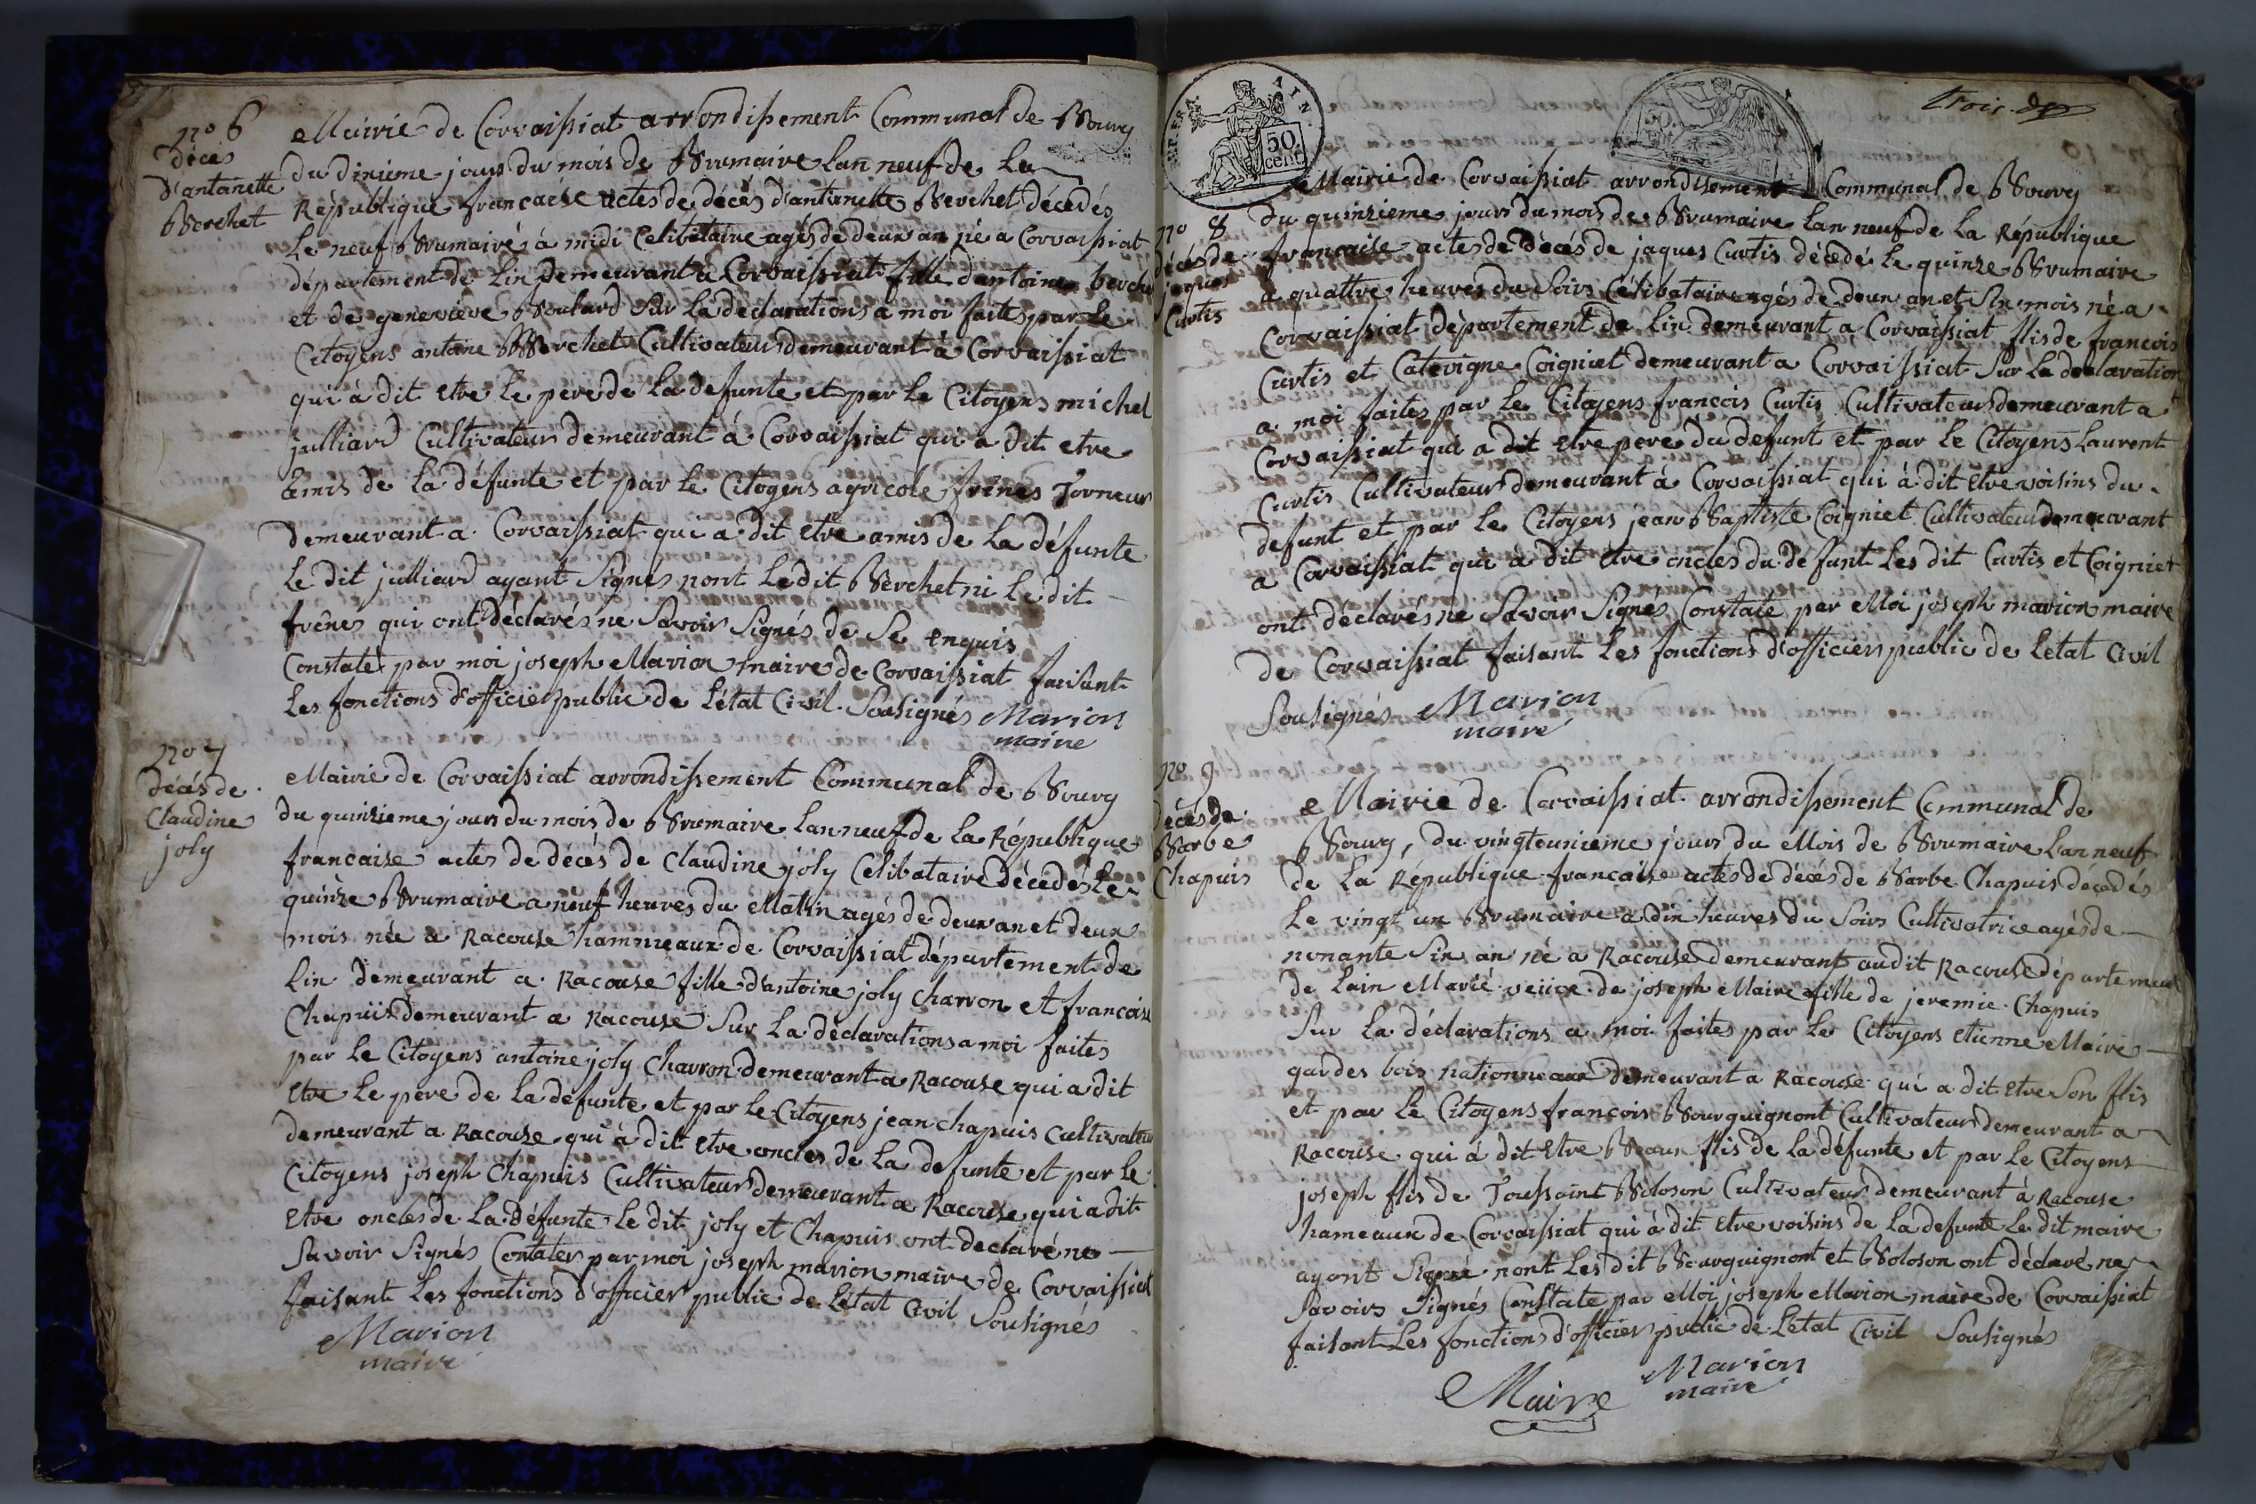 no 6
décés
d'antanette
Berchet
Mairie de Corvaissiat arrondissement Communal de Bourg
du dixieme jours du mois de Brumaire Lan neuf de La
République francaise actes de décés d'antanette Berchet décedés
Le neuf Brumaire à midi Celibataire agés de deux an né a Corvaissiat
département de Lin demeurant à Corvaissiat fille dantoine berchet
et de genevieve Boulard Sur La déclarations a moi faites par Le
Citoyens antoine Berchet Cultivateurs demeurant à Corvaissiat
qui à dit etre Le pere de La defunte et par Le Citoyens michel
julliard Cultivateur demeurant à Corvaissiat qui a dit etre
amis de La défunte et par Le Citoyens agricole frênes Torneur
demeurant a Corvaissiat qui a dit etre amis de La défunte
Le dit jullierd ayant Signés nont Le dit Berchet ni Le dit
frênes qui ont déclarés ne Savoir Signés de Se enquis
Constaté par moi joseph Marion maire de Corvaissiat faisant
Les fonctions d'officier public de Létat Civil Sousignés Marion
maire
no 7
décés de
Claudine
joly
Mairie de Corvaissiat arrondissement Communal de Bourg
du quinsieme jours du mois de Brumaire Lan neuf de La République
francaise actes de décés de Claudine joly Celibataire décedés Le
quinze Brumaire a neuf heures du Matin agés de deux an et deux
mois née a Racouse hammeaux de Corvaissiat département de
Lin demeurant a Racouse fille d'antoine joly Charron et francoise
Chapuis demeurant a Racouse Sur La déclarations a moi faites
par Le Citoyens antoine joly Charron demeurant a Racouse qui a dit
Etre Le pere de La defunte et par Le Citoyens jean chapuis Cultivateur
demeurant a Racouse qui à dit Etre oncles de La defunte et par Le
Citoyens joseph Chapuis Cultivateur demeurant a Racouse qui a dit
Etre oncles de La défunte Le dit joly et Chapuis ont declaré ne
Savoir Signés Contater par moi joseph marion maire de Corvaissiat
faisant Les fonctions d'officier public de Létat Civil Sousignés
Marion
maire
AIN.
50
cent.
50
trois
Mairie de Corvaissiat arrondisement Communal de Bourg
no 8
décés de
jaques
Curtis
du quinsieme jours du mois de Brumaire Lan neuf de La République
francaise actes de décés de jaques Curtis décédé Le quinze Brumaire
a quattre heures du Soirs Célibataire agés de deux an et Six mois né a
Corvaissiat département de Lin demeurant a Corvaissiat fils de francois
Curtis et Catevigne Coigniet demeurant a Corvaissiat Sur La declaration
a moi faites par Le Citoyens francois Curtis Cultivateurs demeurant a
Corvaissiat qui a dit etre pere du defunt et par Le Citoyens Laurent
Curtis Cultivateurs demeurant à Corvaissiat qui à dit Etre voisins du
defunt et par Le Citoyens jean Baptiste Coigniet Cultivateur demeurant
a Corvaissiat qui à dit être oncles du défunt Les dit Curtis et Coigniet
ont déclarés ne Savoir Signés Constaté par Moi joseph marion maire
de Corvaissiat faisant Les fonctions d'officier public de Letat Civil
Sousignés Marion
maire
no 9
décés de
Barbe
Chapuis
Mairie de Corvaissiat arrondissement Communal de
Bourg, du vingteunieme jours du Mois de Brumaire Lan neuf
de La République francaise actes de décés de Barbe Chapuis décedés
Le vingt un Brumaire a dix heures du Soirs Cultivatrice agés de
nonante Six an né a Racouse demeurant audit Racouse département
de Lain Marié veüve de joseph Maire fille de jeremie Chapuis
Sur La déclarations a moi faites par Le Citoyens Etienne Maire
gardes bois nationneaux demeurant a Racouse qui a dit Etre Son fils
et par Le Citoyens francois Bourguignont Cultivateur demeurant a
Racouse qui à dit Etre Beaux fils de La défunte et par Le Citoyens
joseph fils de Toussaint Boloson Cultivateur demeurant à Racouse
hameaux de Corvaissiat qui à dit Etre voisins de La defunte Le dit maire
ayant Signé nont Les dit Bourguignont et Boloson ont déclaré ne
Savoirs Signés Constaté par Moi joseph Marion maire de Corvaissiat
faisant Les fonctions d'officiers public de Letat Civil Sousignés
Maire Marion
maire